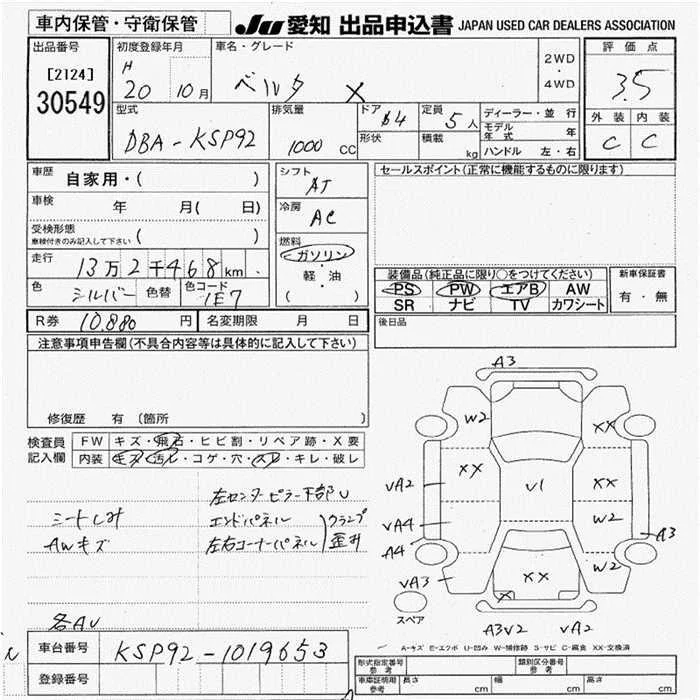 車内保管・守衛保管
JU 愛知 出品申込書 JAPAN USED CAR DEALERS ASSOCIATION
出品番号
[2124]
30549
初度登録年月
H
20 10月
車名・グレード
ベルタ X
2WD
・
4WD
評価点
3.5
外装 内装
C C
型式
DBA-KSP92
排気量
1000 CC
ドア
4
形状
定員
5人
積載
kg
ディーラー・並行
モデル年式 年
ハンドル 左・右
車歴
自家用・( )
車検 年 月( 日)
受検形態
車検付きのみ記入して下さい ( )
走行
13万2千468km
色
シルバー
色替
色コード
1E7
シフト
AT
冷房
AC
燃料
ガソリン
・
軽・油
( )
セールスポイント(正常に機能するものに限ります)
装備品(純正品に限り○をつけてください)
PS PW エアB AW
SR ナビ TV カワシート
新車保証書
有・無
R券 10,880 円 名変期限 月 日
後日品
注意事項申告欄(不具合内容等は具体的に記入して下さい)
修復歴 有 〔箇所 〕
検査員
記入欄
FW キズ・飛石・ヒビ割・リペア跡・X要
内装 キズ・汚レ・コゲ・穴・スレ・キレ・破レ
左センターピラー下部U
シートしみ エンドパネル クランプ
AWキズ 左右コーナーパネル 歪み
各AU
A3
W2
XX
XX
V1
XX
VA2
W2
VA4
A4
A3
W2
VA3
XX
X
スペア
A3V2 VA2
A-キズ E-エクボ U-凹み W-補修跡 S-サビ C-腐食 XX-交換済
車台番号 KSP92-1019653
登録番号
形式指定番号
参考
類別区分番号
参考
車庫証明用
参考
長さ cm 幅 cm 高さ cm